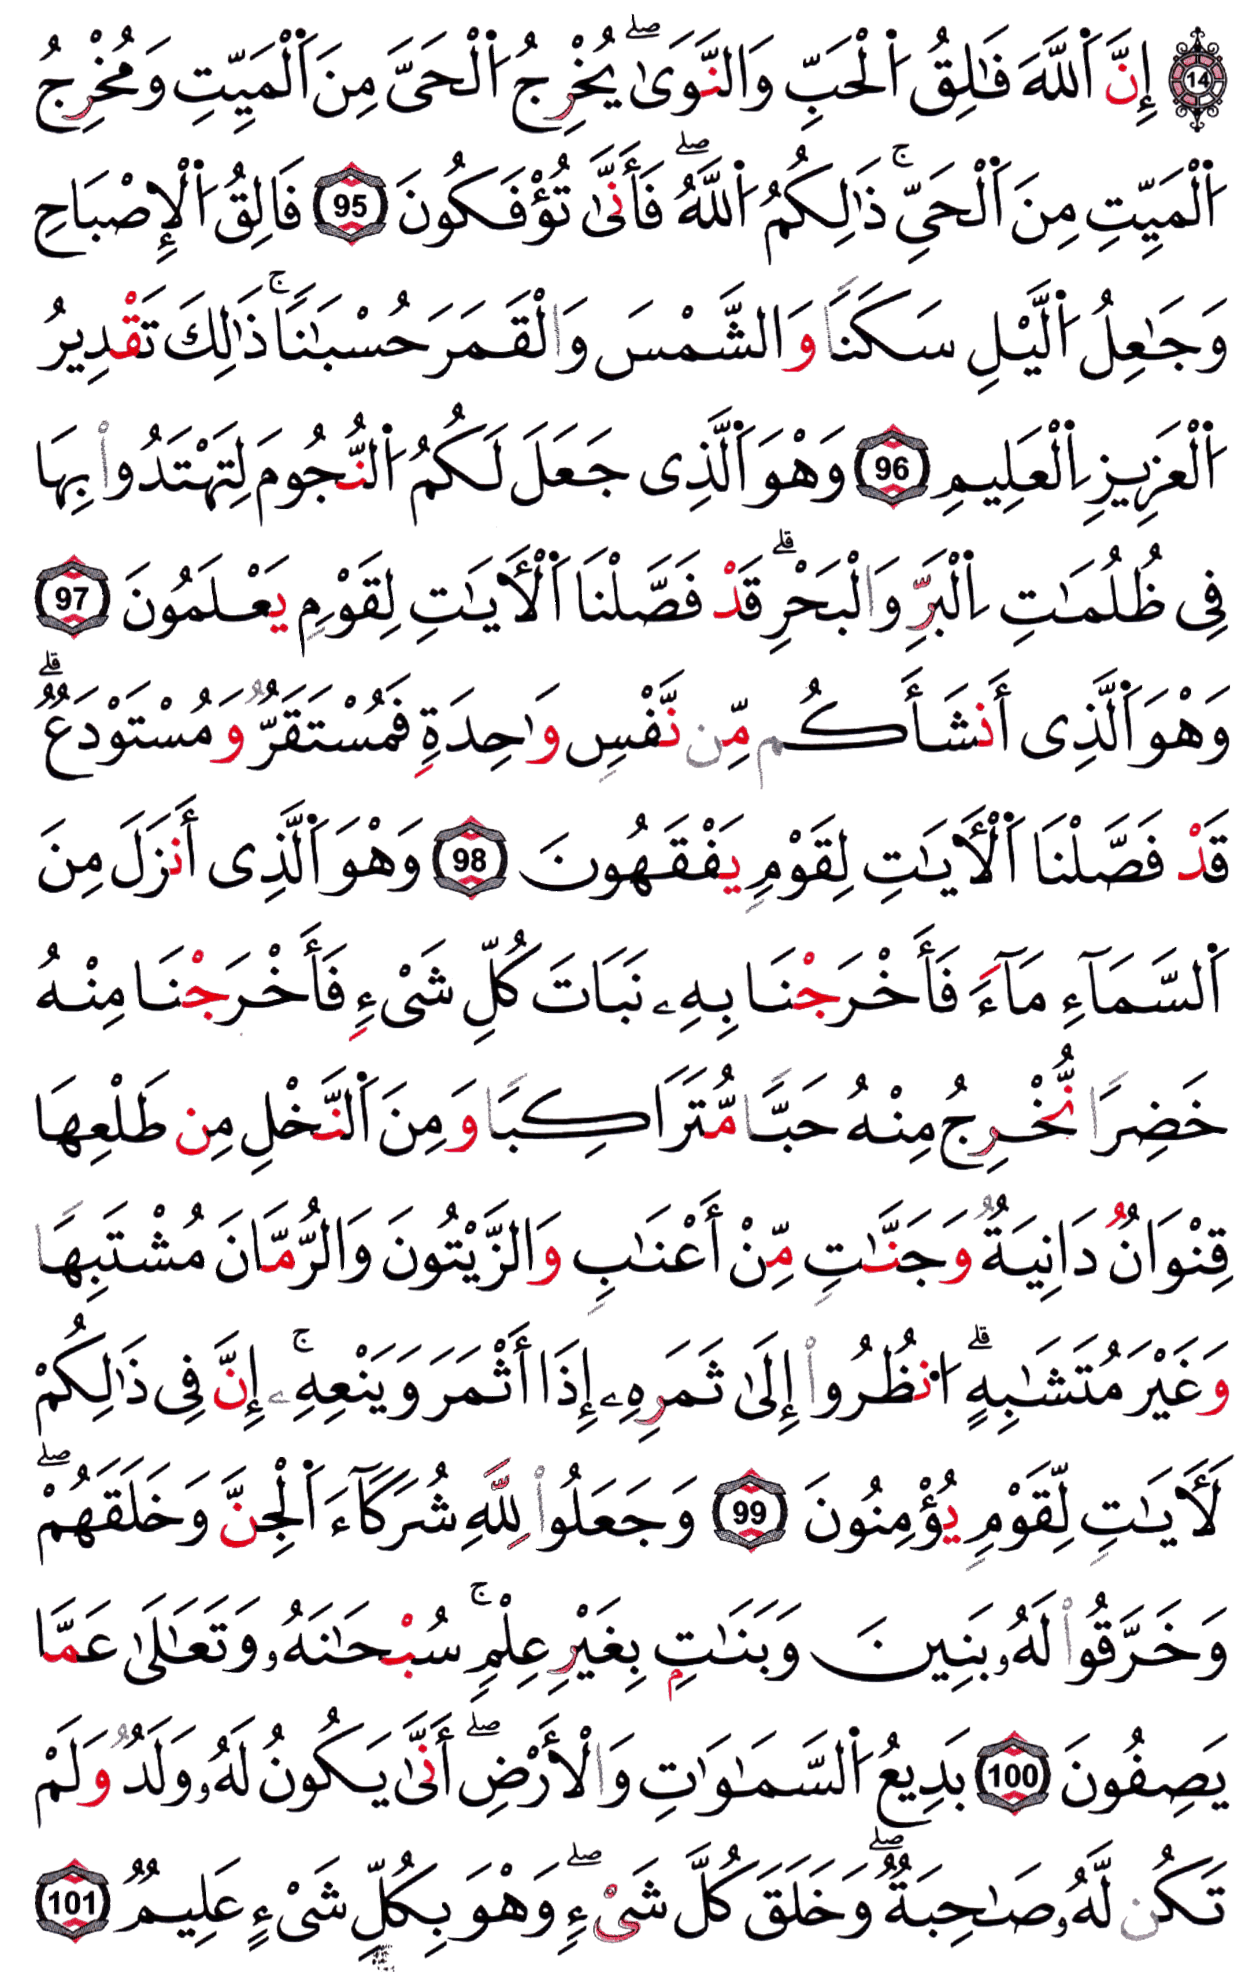 14 إِنَّ اَ۬للَّهَ فَٰلِقُ اُ۬لْحَبِّ وَالنَّوَىٰۖ يُخْرِجُ اُ۬لْحَيَّ مِنَ اَ۬لْمَيِّتِ وَمُخْرِجُ
اُ۬لْمَيِّتِ مِنَ اَ۬لْحَيِّۚ ذَٰلِكُمُ اُ۬للَّهُۖ فَأَنَّىٰ تُؤْفَكُونَ 95 فَالِقُ اُ۬لْإِصْبَاحِ
وَجَٰعِلُ اُ۬لَّيْلِ سَكَنًا وَالشَّمْسَ وَالْقَمَرَ حُسْبَٰنًاۚ ذَٰلِكَ تَقْدِيرُ
اُ۬لْعَزِيزِ اِ۬لْعَلِيمِ 96 وَهْوَ اَ۬لَّذِى جَعَلَ لَكُمُ اُ۬لنُّجُومَ لِتَهْتَدُواْ بِهَا
فِى ظُلُمَٰتِ اِ۬لْبَرِّ وَالْبَحْرِۗ قَدْ فَصَّلْنَا اَ۬لْأٓيَٰتِ لِقَوْمٍ يَعْلَمُونَ 97
وَهْوَ اَ۬لَّذِى أَنشَأَكُم مِّن نَّفْسٍ وَٰحِدَةٍ فَمُسْتَقَرٌّ وَمُسْتَوْدَعٌۗ
قَدْ فَصَّلْنَا اَ۬لْأٓيَٰتِ لِقَوْمٍ يَفْقَهُونَ 98 وَهْوَ اَ۬لَّذِى أَنزَلَ مِنَ
اَ۬لسَّمَآءِ مَآءً فَأَخْرَجْنَا بِهِۦ نَبَاتَ كُلِّ شَىْءٍ فَأَخْرَجْنَا مِنْهُ
خَضِرًا نُّخْرِجُ مِنْهُ حَبًّا مُّتَرَاكِبًا وَمِنَ اَ۬لنَّخْلِ مِن طَلْعِهَا
قِنْوَانٌ دَانِيَةٌ وَجَنَّٰتٍ مِّنْ أَعْنَٰبٍ وَالزَّيْتُونَ وَالرُّمَّانَ مُشْتَبِهًا
وَغَيْرَ مُتَشَٰبِهٍۗ اُ۟نظُرُواْ إِلَىٰ ثَمَرِهِۦ إِذَا أَثْمَرَ وَيَنْعِهِۦۚ إِنَّ فِى ذَٰلِكُمْ
لَأٓيَٰتٍ لِّقَوْمٍ يُؤْمِنُونَ 99 وَجَعَلُواْ لِلَّهِ شُرَكَآءَ اَ۬لْجِنَّ وَخَلَقَهُمْۖ
وَخَرَّقُواْ لَهُۥ بَنِينَ وَبَنَٰتٍ بِغَيْرِ عِلْمٍۚ سُبْحَٰنَهُۥ وَتَعَٰلَىٰ عَمَّا
يَصِفُونَ 100 بَدِيعُ اُ۬لسَّمَٰوَٰتِ وَالْأَرْضِۖ أَنَّىٰ يَكُونُ لَهُۥ وَلَدٌ وَلَمْ
تَكُن لَّهُۥ صَٰحِبَةٌۖ وَخَلَقَ كُلَّ شَىْءٍۖ وَهْوَ بِكُلِّ شَىْءٍ عَلِيمٌ 101